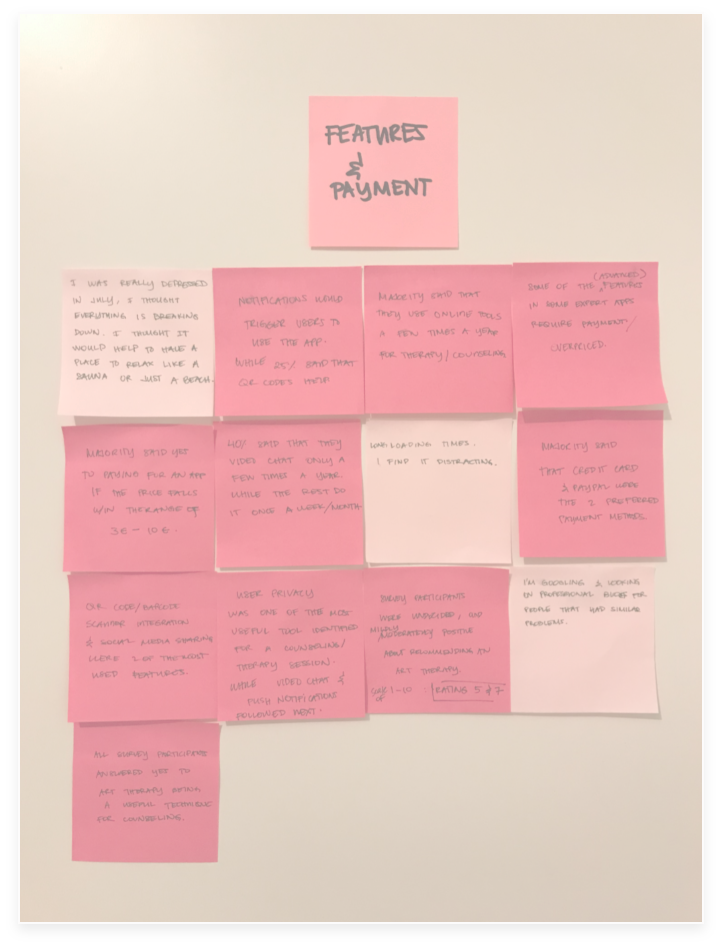 FEATURES
&
PAYMENT
I WAS REALLY DEPRESSED
IN JULY, I THOUGHT
EVERYTHING IS BREAKING
DOWN. I THOUGHT IT
WOULD HELP TO HAVE A
PLACE TO RELAX LIKE A
SAUNA OR JUST A BEACH.
NOTIFICATIONS WOULD
TRIGGER USERS TO
USE THE APP.
WHILE 25% SAID THAT
QR CODES HELP
MAJORITY SAID THAT
THEY USE ONLINE TOOLS
A FEW TIMES A YEAR
FOR THERAPY/COUNSELING
(ADVANCED)
SOME OF THE FEATURES
IN SOME EXPERT APPS
REQUIRE PAYMENT/
OVERPRICED.
MAJORITY SAID YES
TO PAYING FOR AN APP
IF THE PRICE FALLS
W/IN THE RANGE OF
3€ - 10€.
40% SAID THAT THEY
VIDEO CHAT ONLY A
FEW TIMES A YEAR
WHILE THE REST DO
IT ONCE A WEEK/MONTH.
LONG LOADING TIMES.
I FIND IT DISTRACTING.
MAJORITY SAID
THAT CREDIT CARD
& PAYPAL WERE
THE 2 PREFERRED
PAYMENT METHOD.
QR CODE/BARCODE
SCANNER INTEGRATION
& SOCIAL MEDIA SHARING
WERE 2 OF THE MOST
USED FEATURES.
USER PRIVACY
WAS ONE OF THE MOST
USEFUL TOOL IDENTIFIED
FOR A COUNSELING/
THERAPY SESSION.
WHILE VIDEO CHAT &
PUSH NOTIFICATIONS
FOLLOWED NEXT.
SURVEY PARTICIPANTS
WERE UNDECIDED, AND
MILDLY/MODERATELY POSITIVE
ABOUT RECOMMENDING AN
ART THERAPY.
OF 1-10 : RATING 5 & 7
I'M GOOGLING & LOOKING
IN PROFESSIONAL BLOGS FOR
PEOPLE THAT HAD SIMILAR
PROBLEMS.
ALL SURVEY PARTICIPANTS
ANSWERED YES TO
ART THERAPY BEING
A USEFUL TECHNIQUE
FOR COUNSELING.